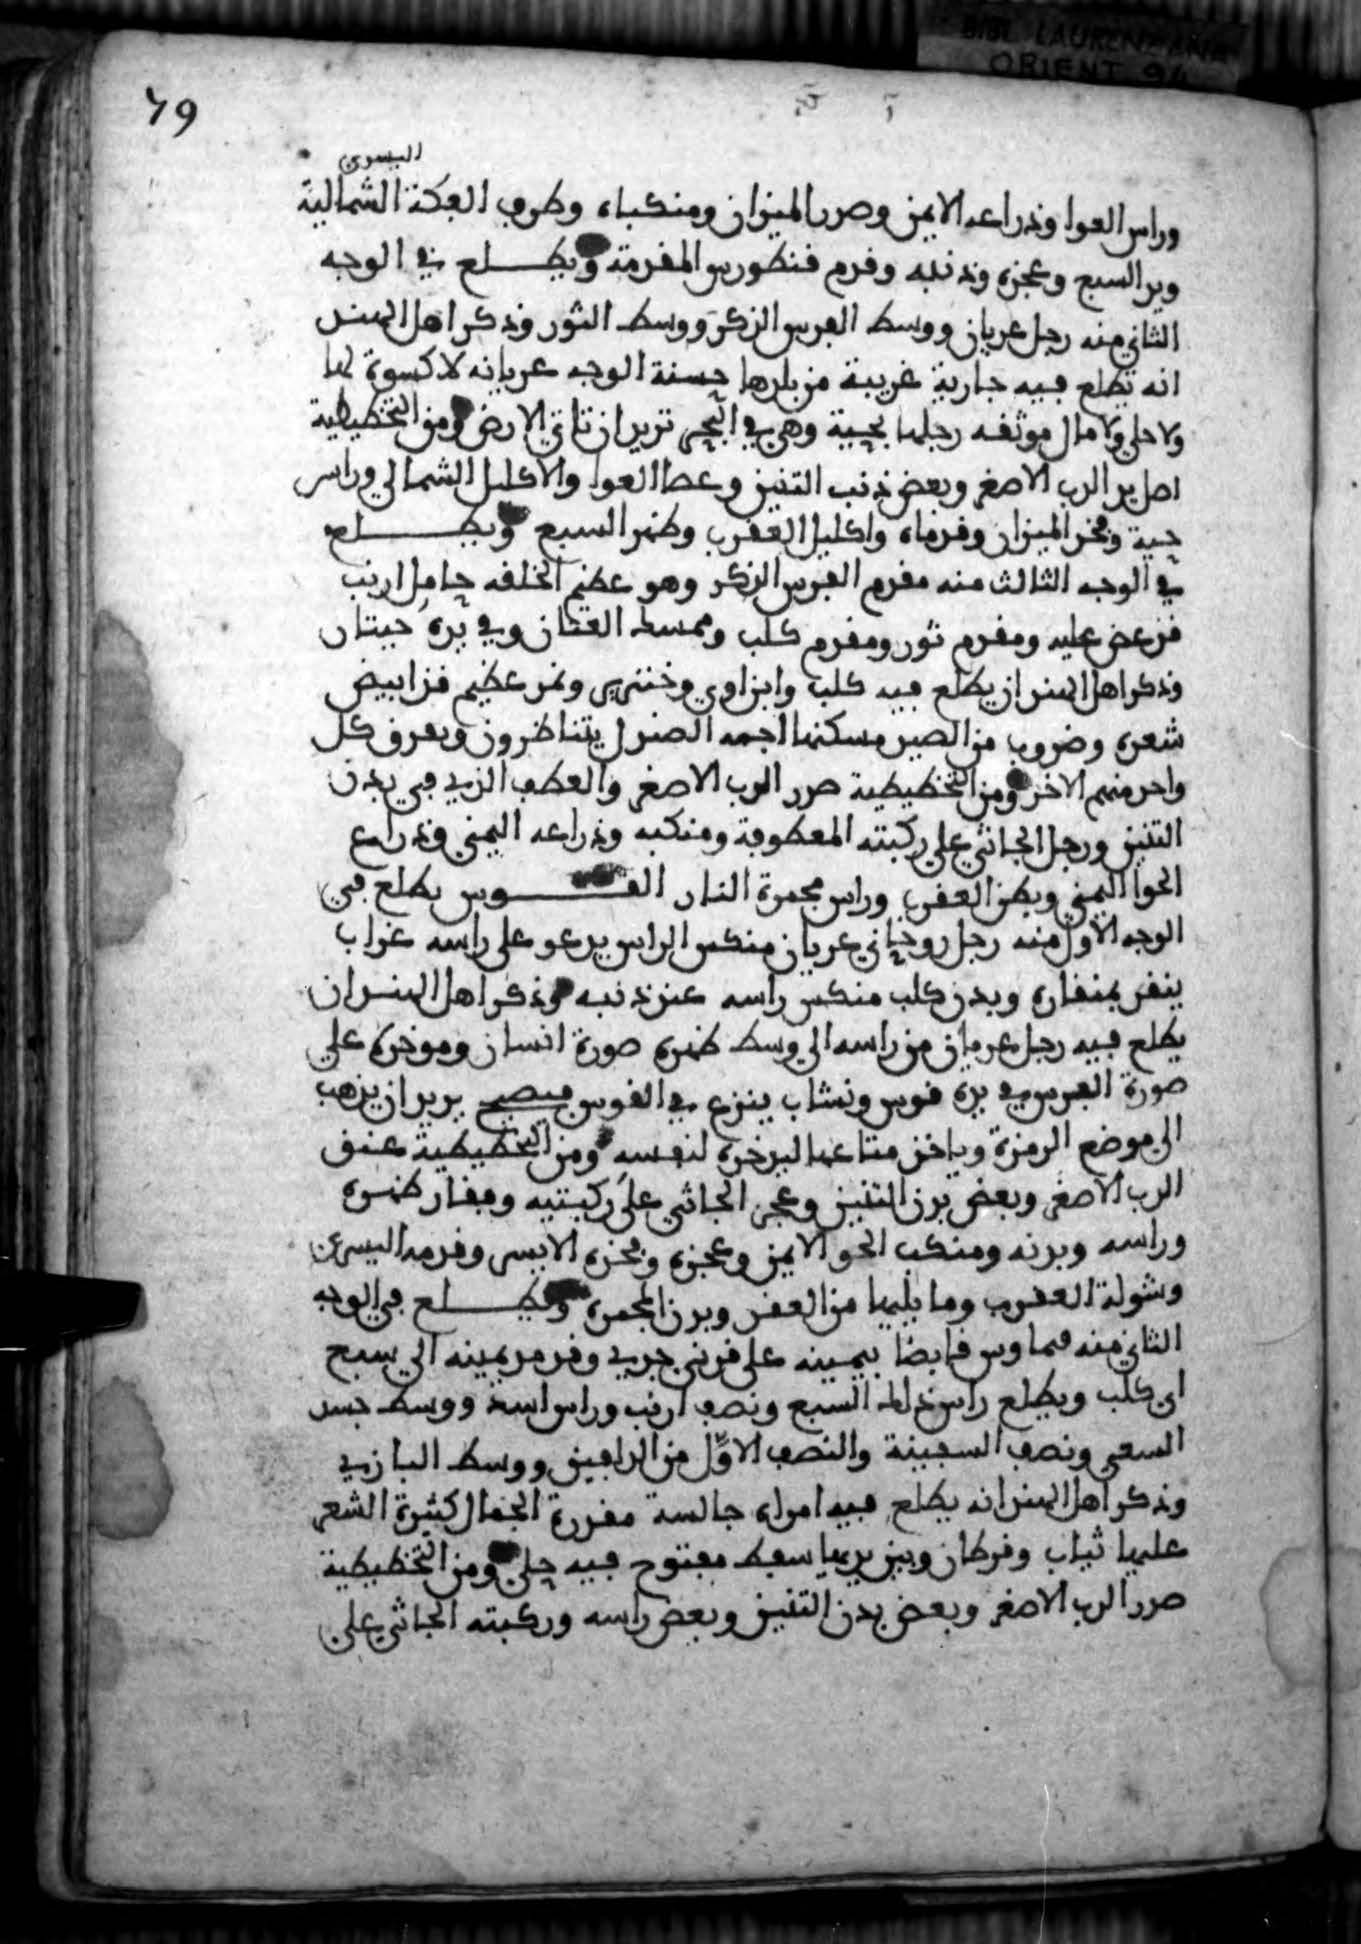 BIBL. LAURENZIANA
ORIENT 94
79
اليسرى
وراس العوا وذراعه الايمن وصدر الميزان ومنكباه وطرف الفكة الشمالية
ويد السبع وعجزه وذنبه وقدم قنطورس المقدمة ويطلع في الوجه
الثاني منه رجل عريان ووسط الفرس الذكر ووسط الثور وذكر اهل الهند
انه تطلع فيه جارية غريبة من بلدها حسنة الوجه عريانه لا كسوة لها
ولا حلي ولا مال موثقه رجلها بحية وهي في البحر تريد ان تاتي الارض ومن التخطيطية
اصل يد الدب الاصغر وبعض ذنب التنين وعصا العوا والاكليل الشمالي وراس
حية وفخذ الميزان وقدماه واكليل العقرب وظهر السبع ويطلع
في الوجه الثالث منه مقدم الفرس الذكر وهو عظيم الخلقه حامل ارنب
قد عض عليه ومقدم ثور ومقدم كلب وممسك العنان وفي يده حيتان
وذكر اهل الهند ان يطلع فيه كلب وابن اوى وخنزير ونمر عظيم قد ابيض
شعره وضروب من الصيد مسكنها اجمة الصندل يتناظرون ويعرف كل
واحد منهم الاخر ومن التخطيطية صدر الدب الاصغر والعطف الذي في بدن
التنين ورجل الجاثي على ركبته المعطوفة ومنكبه وذراعه اليمنى وذراع
الحوا اليمنى وبطن العقرب وراس مجمرة النار القوس يطلع في
الوجه الاول منه رجل روحاني عريان منكس الراس يدعو على راسه غراب
ينقر بمنقاره وبدن كلب منكس راسه عند ذنبه وذكر اهل الهند ان
يطلع فيه رجل عريان من راسه الى وسط ظهره صورة انسان وموخره على
صورة الفرس في يده قوس ونشاب ينزع في القوس فيصيح يريد ان يذهب
الى موضع الرمزة وياخذ متاعها ليدخره لنفسه ومن التخطيطية عنق
الدب الاصغر وبعض بدن التنين وعجز الجاثي على ركبتيه وفقار ظهره
وراسه وبدنه ومنكب الحوا الايمن وعجزه وفخذه الايسر وقدمه اليسرى
وشولة العقرب وما يليها من العقد وبدن المجمرة ويطلع في الوجه
الثاني منه قيقاوس قابضا بيمينه على قرني جدي وقد مد يمينه الى سبع
اي كلب ويطلع راس ذلك السبع ونصف ارنب وراس اسد ووسط جسد
السعى ونصف السفينة والنصف الاول من الدلفين ووسط البازي
وذكر اهل الهند انه يطلع فيه امراه جالسة مفردة الجمال كثيرة الشعر
عليها ثياب وقرطان وبين يديها سفط مفتوح فيه حلي ومن التخطيطية
صدر الدب الاصغر وبعض بدن التنين وبعض راسه وركبته الجاثي على